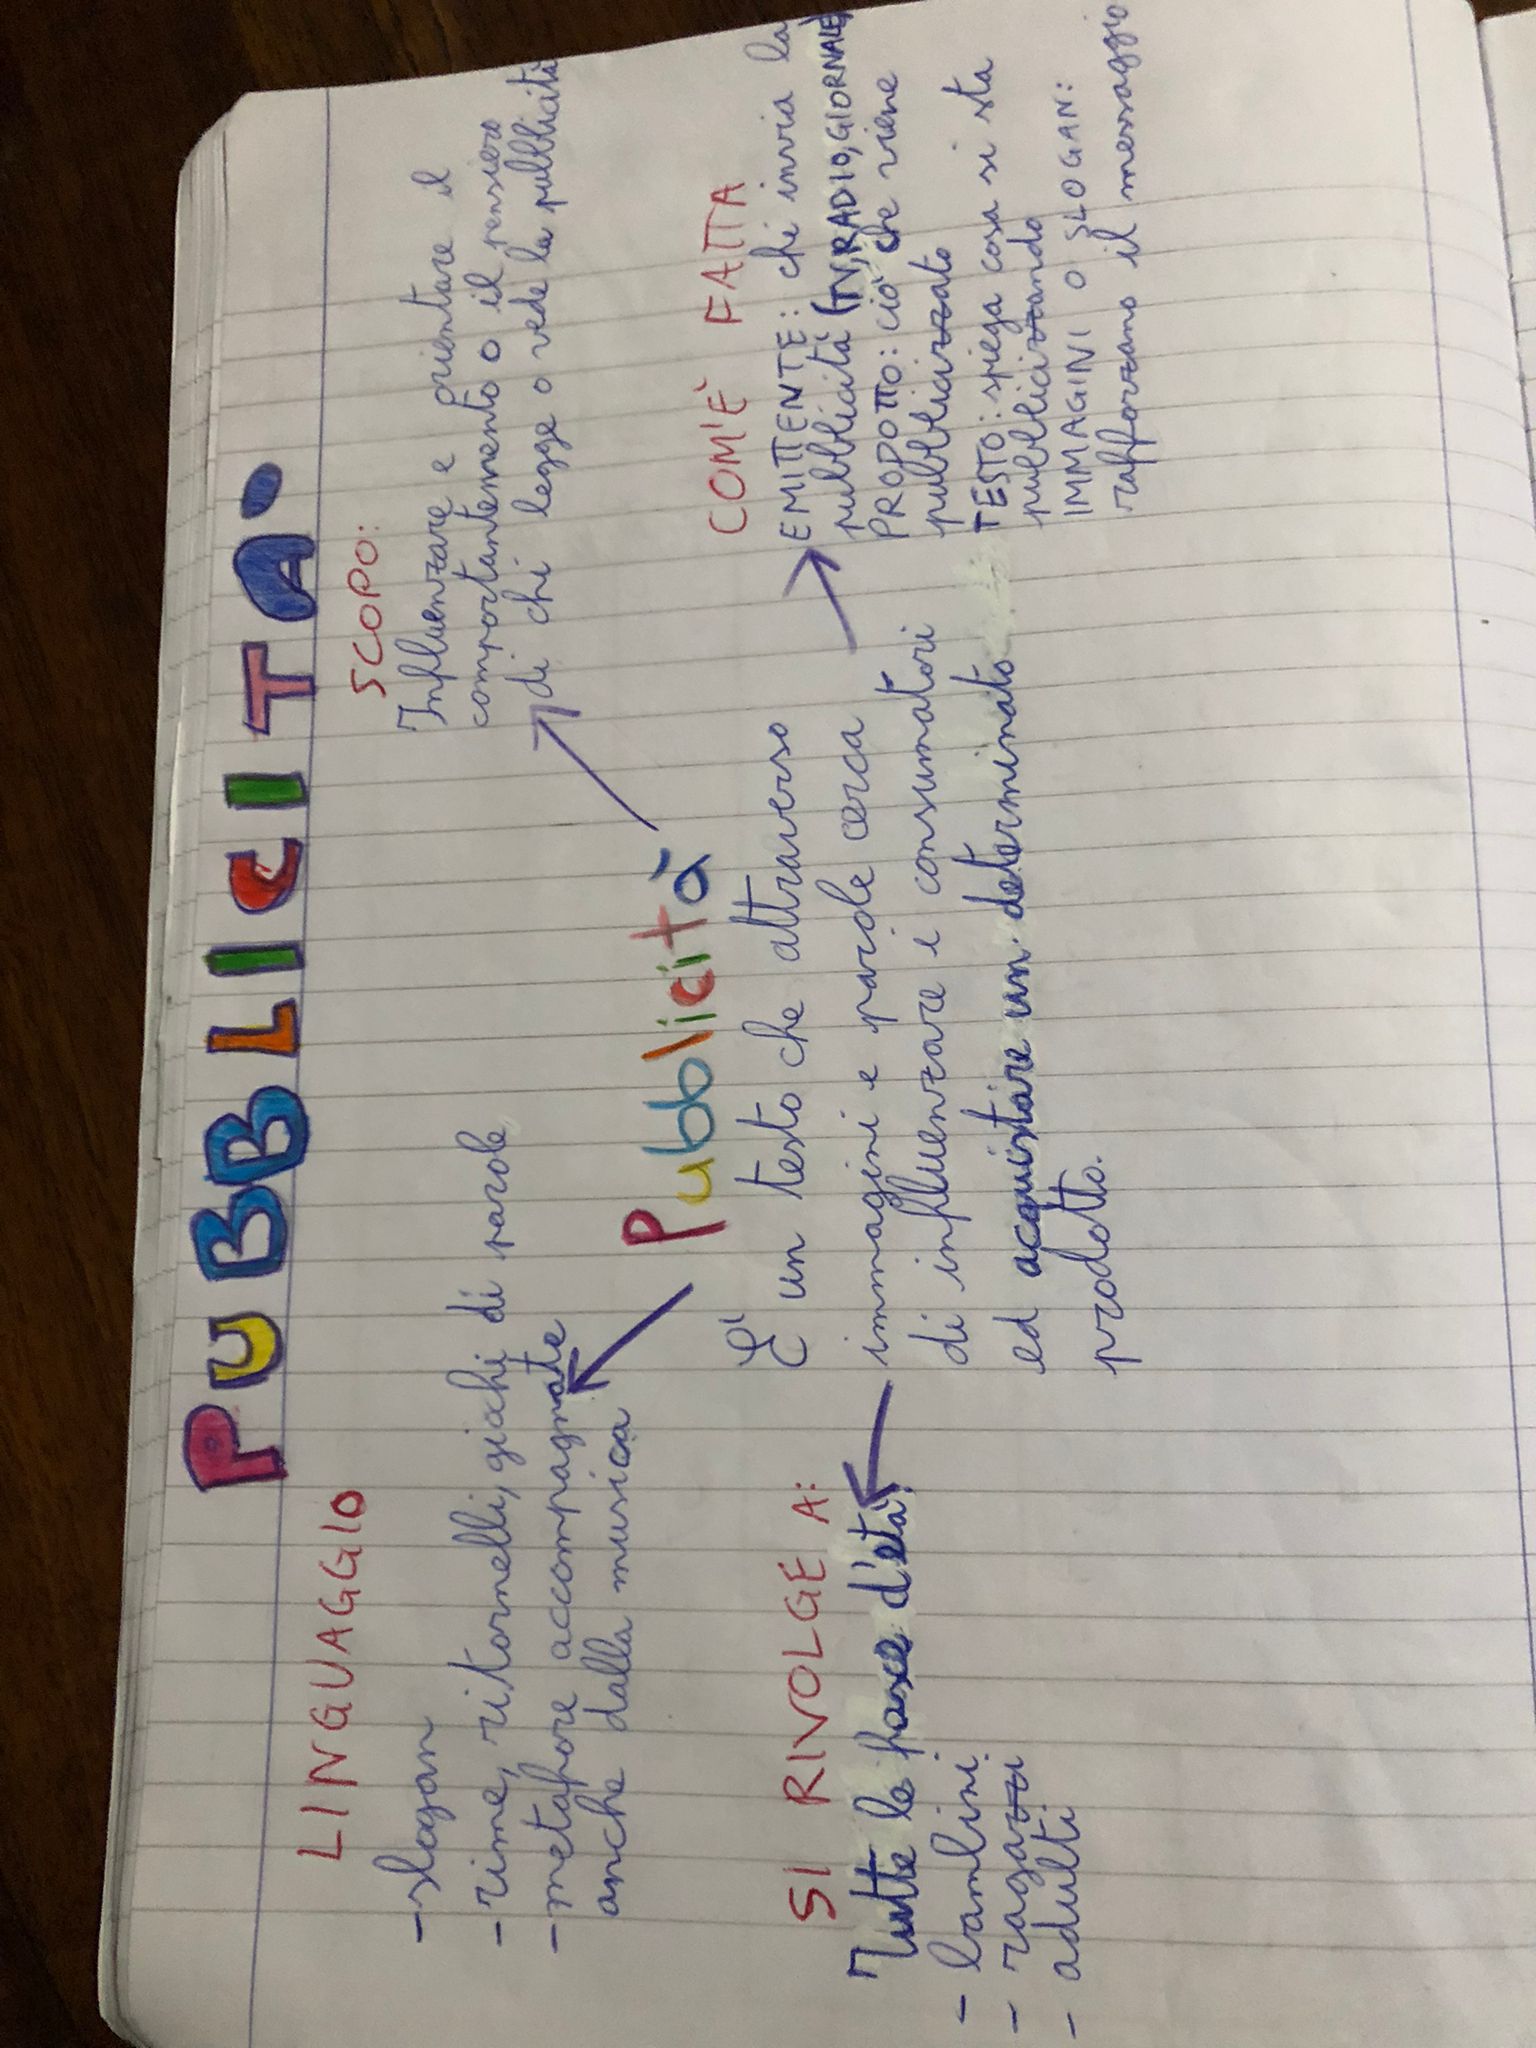 PUBBLICITA.
LINGUAGGIO
- slogan
- rime, ritornelli, giochi di parole
- metafore accompagnate
anche dalla musica
SCOPO:
Influenzare e orientare il
comportantemento o il pensiero
di chi legge o vede la pubblicità
Pubblicità
E' un testo che attraverso
immagini e parole cerca
di influenzare i consumatori
ed acquistare un determinato
prodotto.
SI RIVOLGE A:
Tutte le fasce d'età:
- bambini
- ragazzi
- adulti
COM'È FATTA
EMITTENTE: chi invia la
pubblicità (TV, RADIO, GIORNALE)
PRODOTTO: ciò che viene
pubblicizzato
TESTO: spiega cosa si sta
pubblicizzando
IMMAGINI O SLOGAN:
rafforzano il messaggio